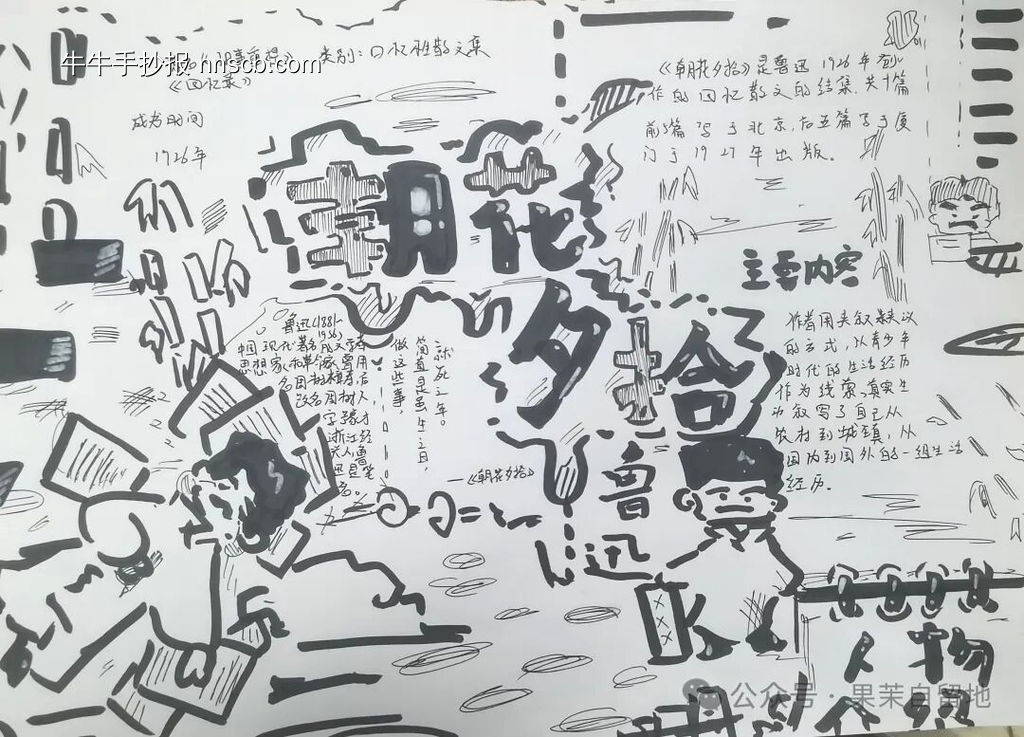 牛牛手抄报 hnscb.com
类别:回忆性散文集
《回忆录》
成书时间
1926年
《朝花夕拾》是鲁迅1926年创
作的回忆散文的结集,共十篇
前5篇写于北京,后五篇写于厦
门于1927年出版。
朝花
夕拾
主要内容
作者用夹叙夹议
的方式,以青少年
时代的生活经历
作为线索,真实生
动叙写了自己从
农村到城镇,从
国内到国外的一组生活
经历。
鲁迅(1881-
1936),
中国现代著名文学家
思想家和革命家曾用
名周樟寿,后
改名周树人
字豫才
浙江绍
兴人,鲁
迅是笔
名。
做这些事,
简直是虽生之日,
——《朝花夕拾》
鲁
迅
人物
介绍
公众号·果茉自留地